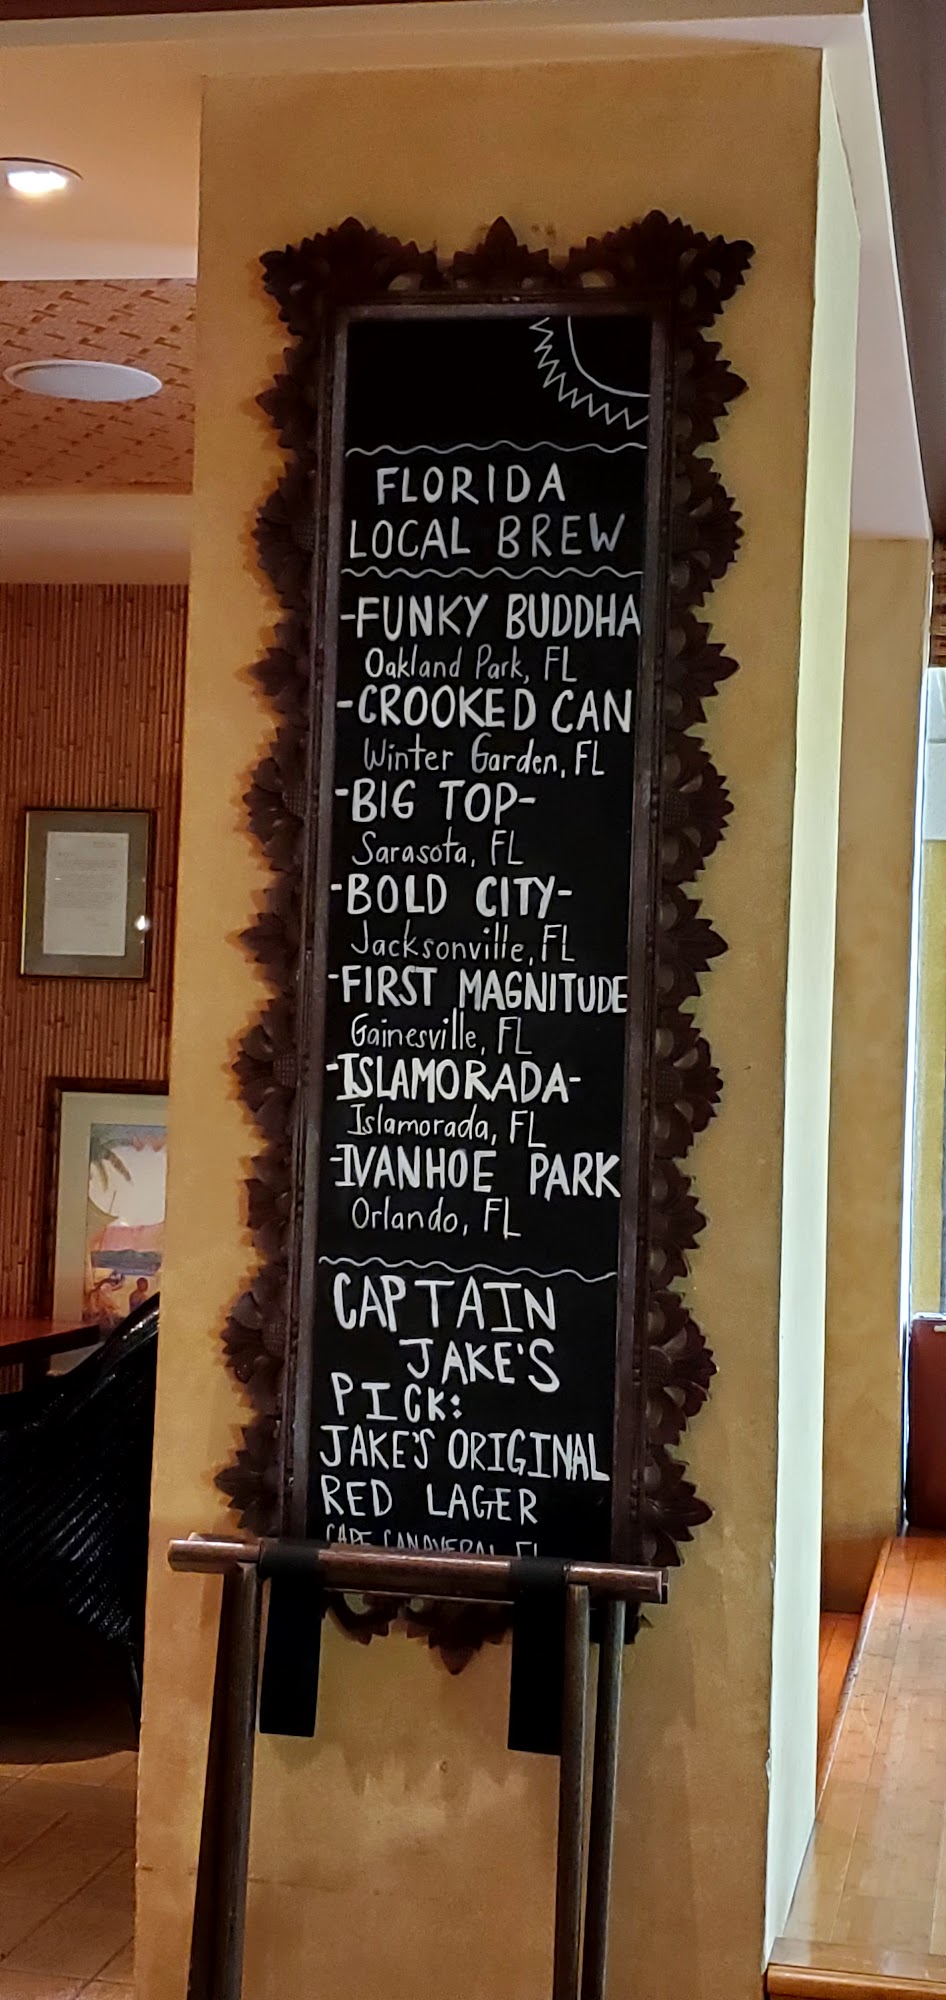 FLORIDA
LOCAL BREW
-FUNKY BUDDHA
Oakland Park, FL
-CROOKED CAN
Winter Garden, FL
-BIG TOP-
Sarasota, FL
-BOLD CITY-
Jacksonville, FL
-FIRST MAGNITUDE
Gainesville, FL
-ISLAMORADA-
Islamorada, FL
-IVANHOE PARK
Orlando, FL
CAPTAIN
JAKE'S
PICK:
JAKE'S ORIGINAL
RED LAGER
CAPE CANAVERAL FL